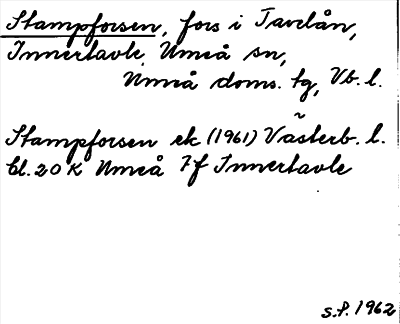 Stampforsen, fors i Tavelån,
Innertavle, Umeå sn,
Umeå doms. tg, Vb. l.
Stampforsen ek (1961) Västerb. l.
bl. 20 K Umeå 7f Innertavle
S.P. 1962